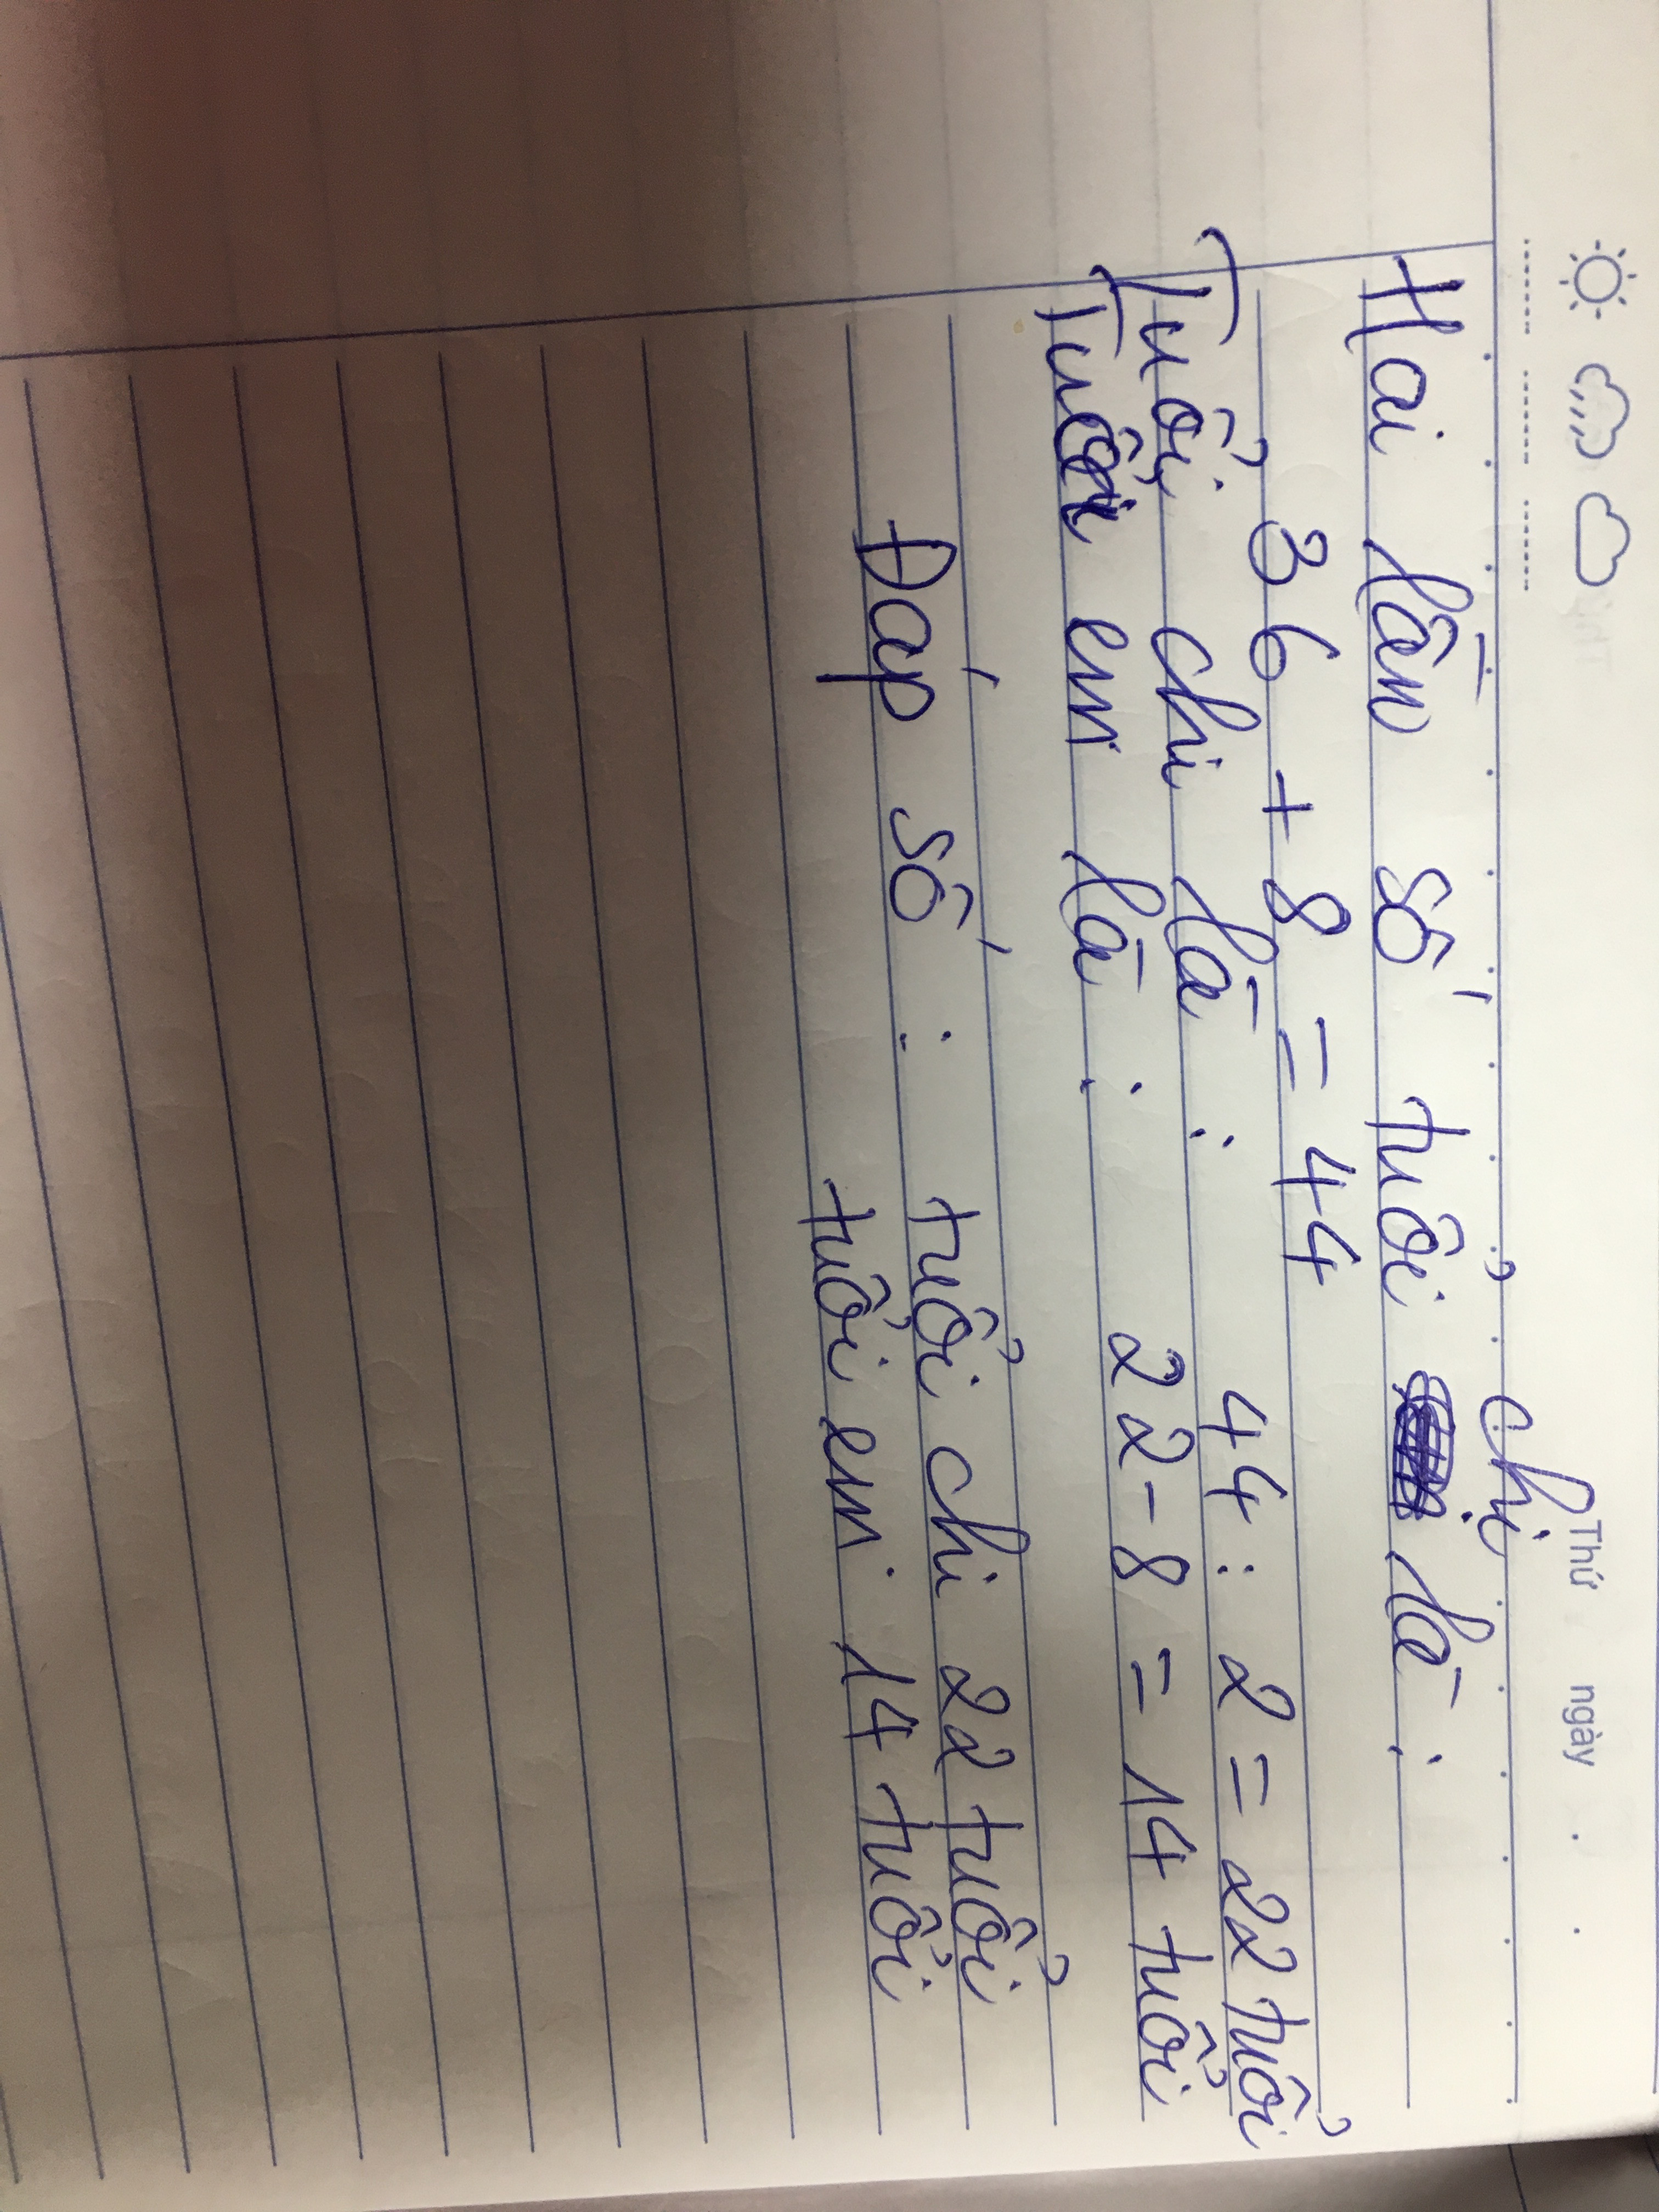 Thứ ngày
Hai lần số tuổi chị là :
36 + 8 = 44
Tuổi chi là : 44 : 2 = 22 tuổi
Tuổi em là : 22 - 8 = 14 tuổi
Đáp số : tuổi chi 22 tuổi
tuổi em 14 tuổi